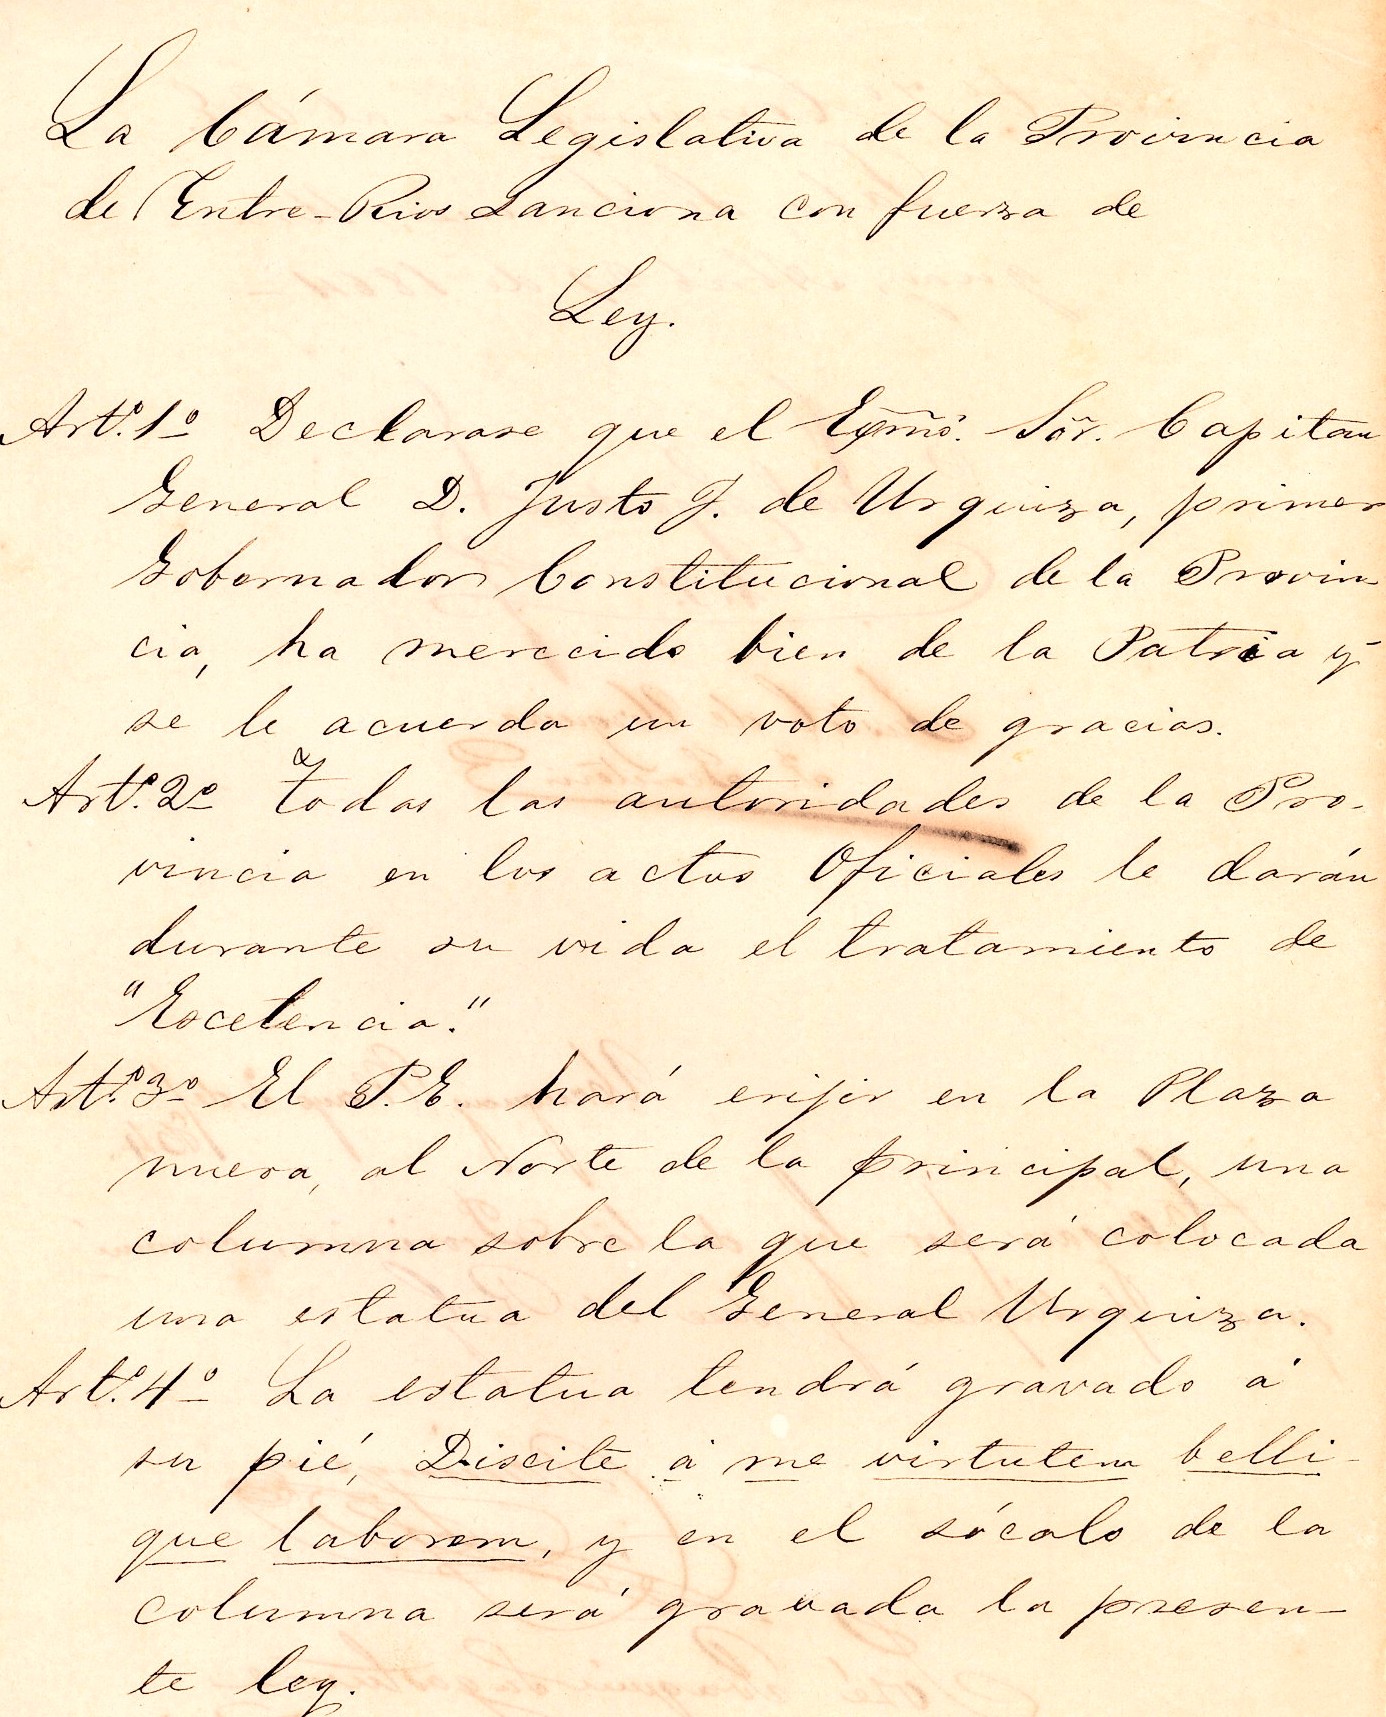 La Cámara Legislativa de la Provincia
de Entre-Rios Sanciona con fuerza de
Ley.
Artº. 1º Declarase que el Exmõ. Sõr. Capitan
General D. Justo J. de Urquiza, primer
Gobernador Constitucional de la Provin-
cia, ha merecido bien de la Patria y
se le acuerda un voto de gracias.
Artº. 2º Todas las autoridades de la Pro-
vincia en los actos Oficiales le darán
durante su vida el tratamiento de
"Escelencia."
Artº. 3º El P.E. hará erijir en la Plaza
nueva, al Norte de la principal, una
columna sobre la que será colocada
una estatua del General Urquiza.
Artº. 4º La estatua tendrá gravado á
su pié, Discite á me virtutem belli-
que laborem, y en el sócalo de la
columna será gravada la presen-
te ley.